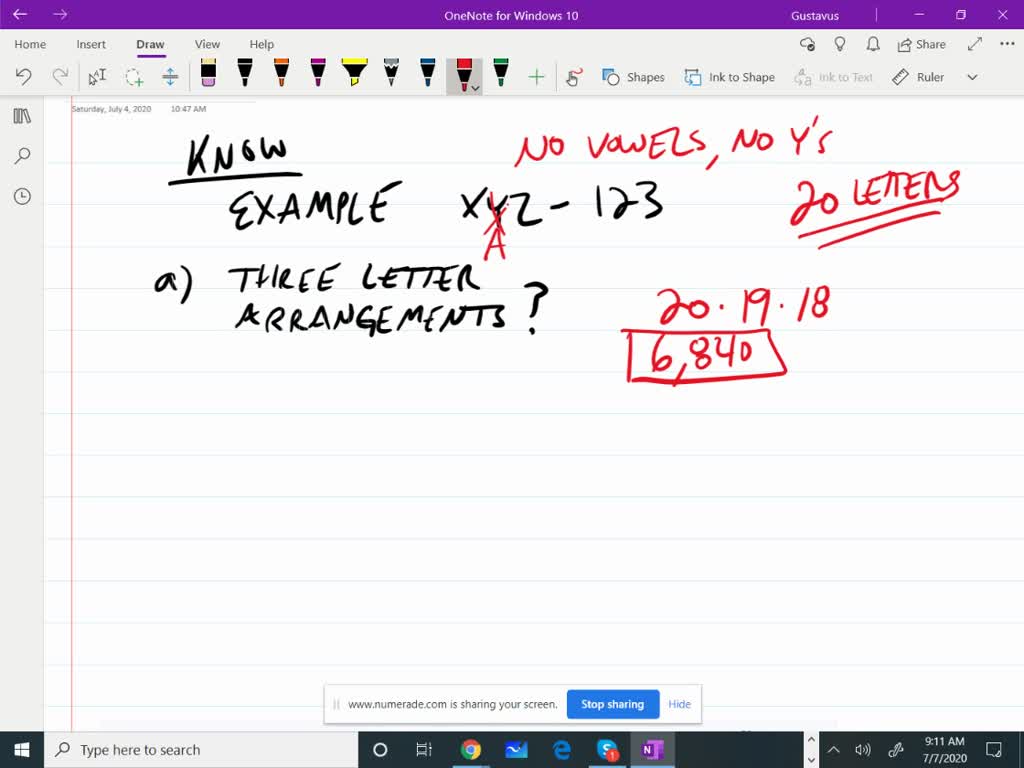 OneNote for Windows 10
Gustavus
Home Insert Draw View Help
Share
Shapes Ink to Shape Ink to Text Ruler
Saturday, July 4, 2020 10:47 AM
KNOW
NO VOWELS, NO Y'S
EXAMPLE XYZ - 123
20 LETTERS
A
a) THREE LETTER
ARRANGEMENTS?
20 · 19 · 18
6,840
www.numerade.com is sharing your screen. Stop sharing Hide
Type here to search
9:11 AM
7/7/2020